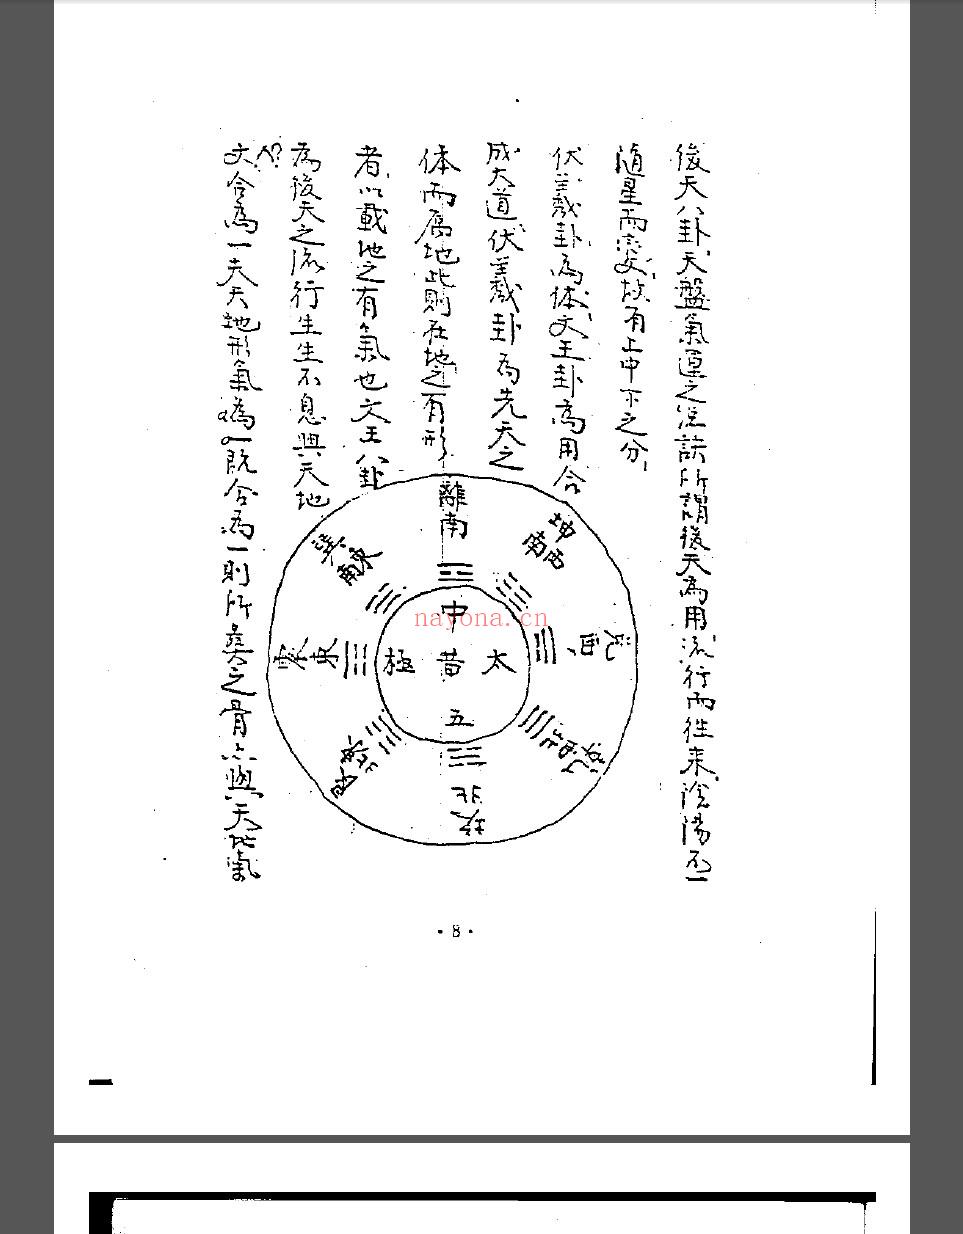 後天八卦天盤氣運之從訣所謂後天為用流行而往來陰陽不一
隨星而變故有上中下之分
伏羲卦為体文王卦為用合
成大道伏羲卦為先天之
体而屬地此則在地之有形
者以載地之有氣也文王八卦
為後天之流行生生不息與天地
文合為一夫天地形氣為一既合為一則所奠之骨亦與天地氣
離南
坤西南
兌西
乾西北
坎北
艮東北
震東
巽東南
中
太黃極
五
nayona.cn
·8·